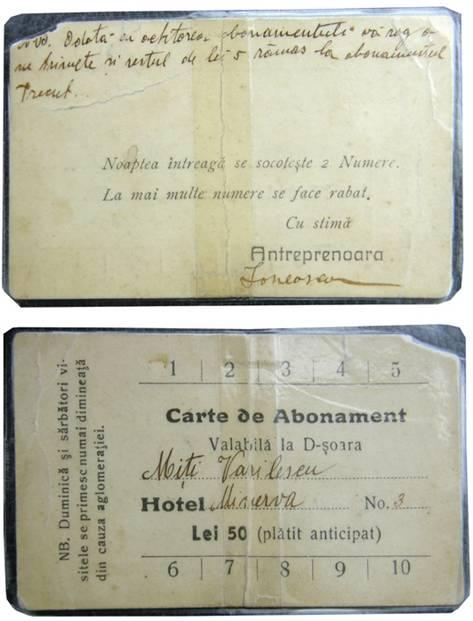 Odată cu achitarea abonamentului vă rog a
ne trimete și restul de lei 5 rămas la abonamentul
Trecut.
Noaptea întreagă se socotește 2 Numere.
La mai multe numere se face rabat.
Cu stimă
Antreprenoara
Ionescu
1 2 3 4 5
Carte de Abonament
Valabilă la D-șoara
Miți Vasilescu
Hotel Minerva No. 3
Lei 50 (plătit anticipat)
6 7 8 9 10
NB. Duminică și sărbători vi-
sitele se primesc numai dimineață
din cauza aglomerației.